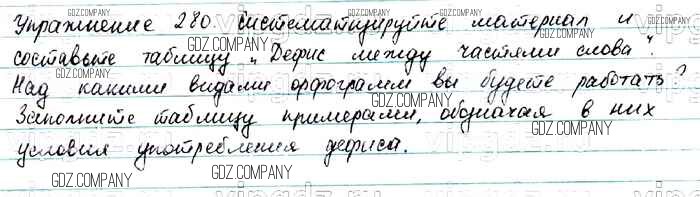 Упражнение 280. Систематизируйте материал и
составьте таблицу „Дефис между частями слова".
Над какими видами орфограмм вы будете работать?
Заполните таблицу примерами, обозначая в них
условия употребления дефиса.
GDZ.COMPANY
GDZ.COMPANY
GDZ.COMPANY
GDZ.COMPANY
GDZ.COMPANY
GDZ.COMPANY
GDZ.COMPANY